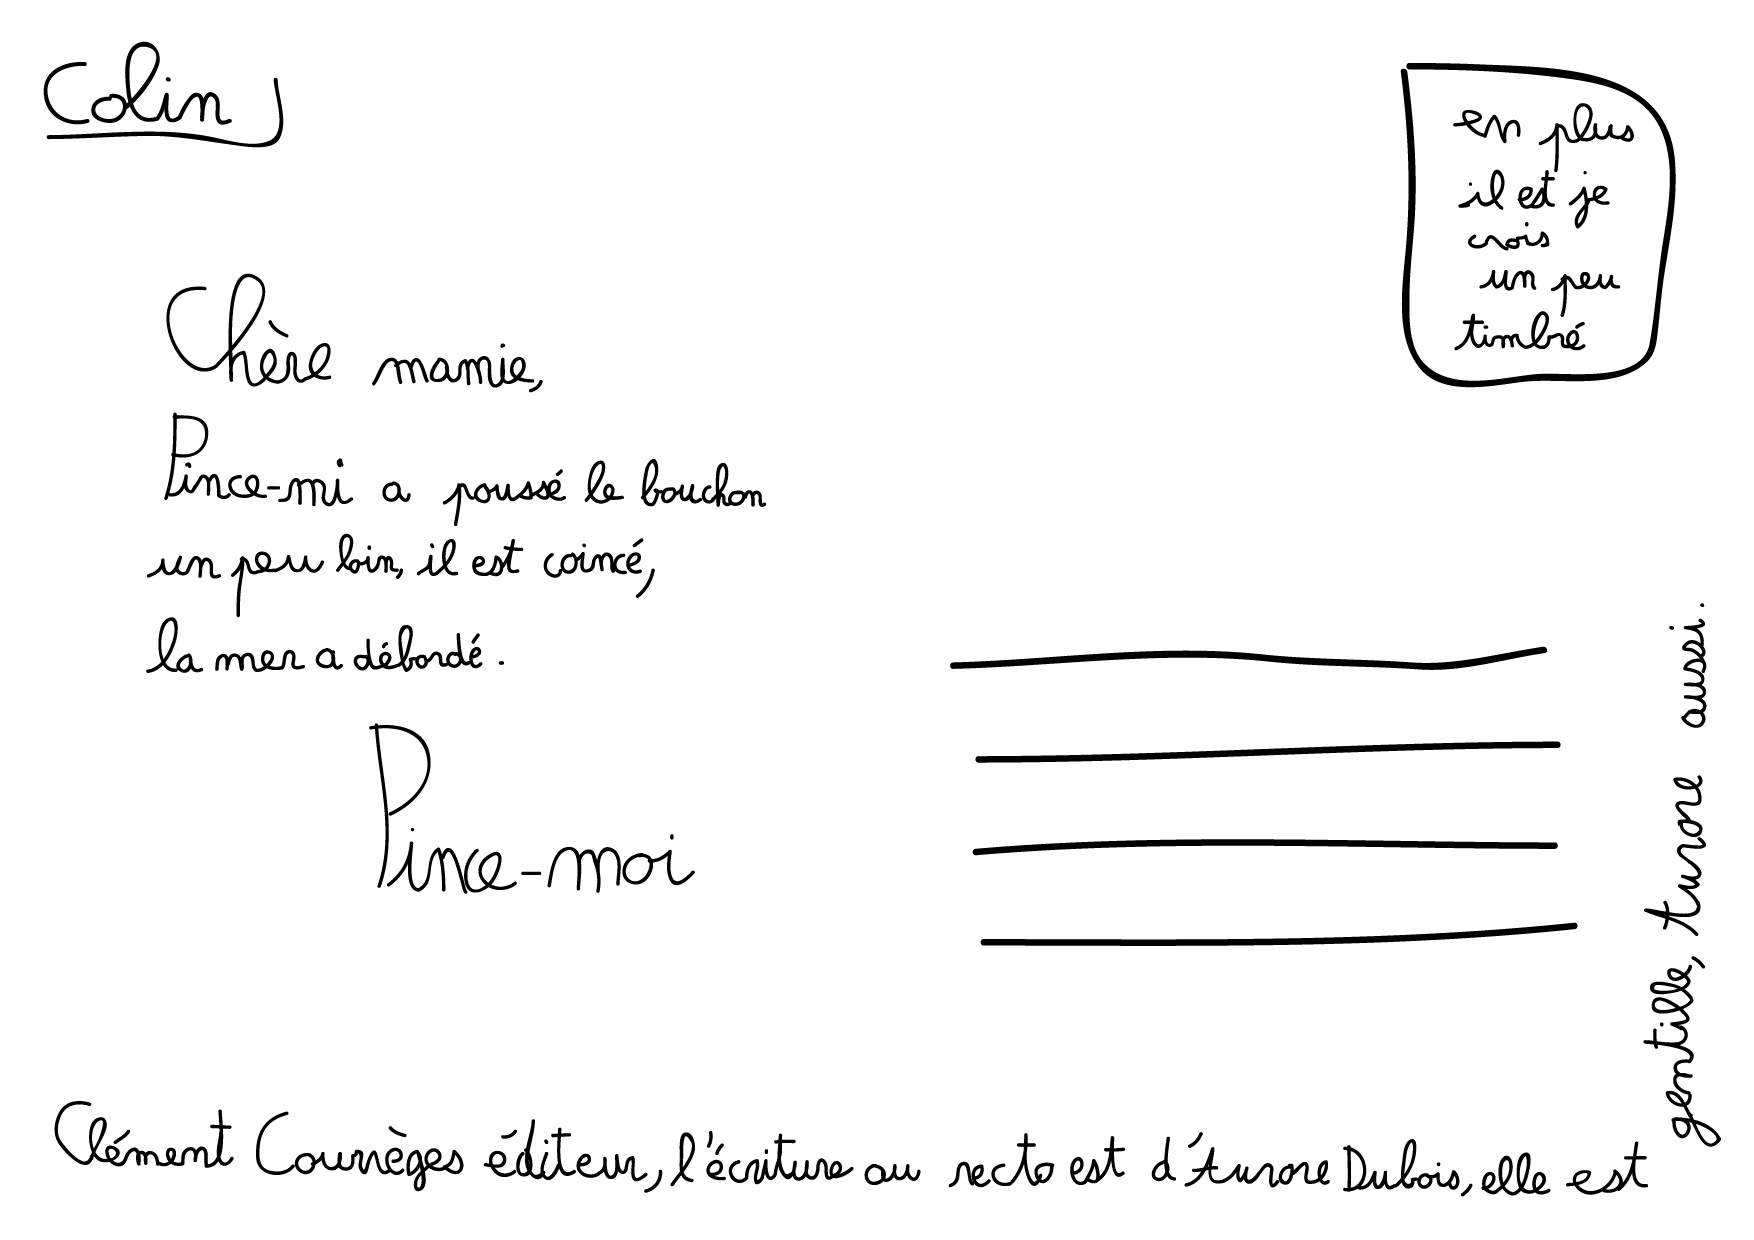 Colin J
en plus
il est je
crois
un peu
timbré
Chère mamie,
Pince-mi a poussé le bouchon
un peu loin, il est coincé,
la mer a débordé.
Pince-moi
Clément Courrèges éditeur, l'écriture au recto est d'Aurore Dubois, elle est
gentille, Aurore aussi.